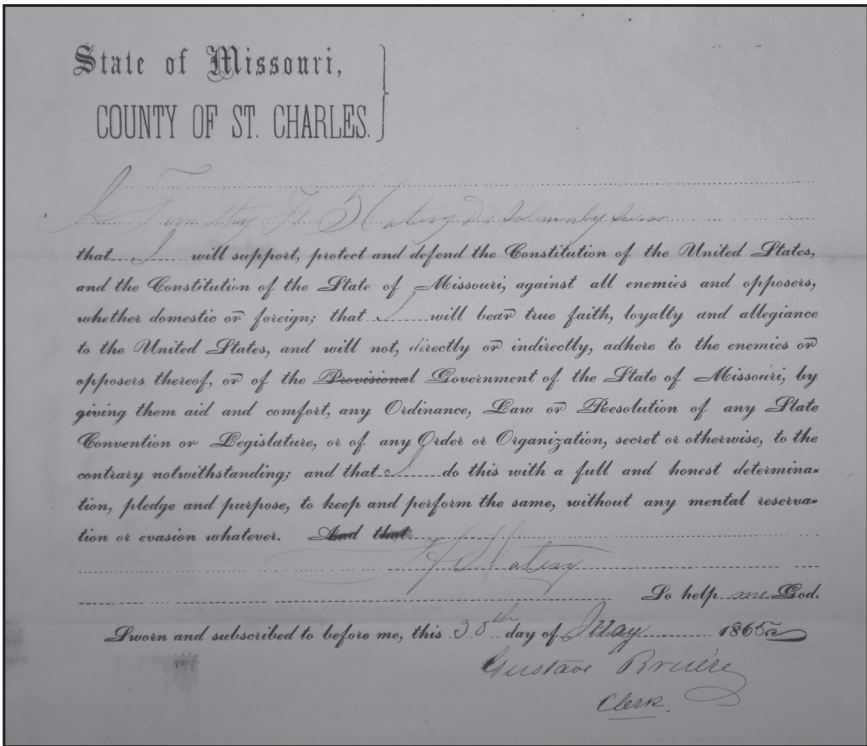 State of Missouri,
COUNTY OF ST. CHARLES.
I Timothy F. Slatery do solemnly swear
that I will support, protect and defend the Constitution of the United States,
and the Constitution of the State of Missouri, against all enemies and opposers,
whether domestic or foreign; that I will bear true faith, loyalty and allegiance
to the United States, and will not, directly or indirectly, adhere to the enemies or
opposers thereof, or of the Provisional Government of the State of Missouri, by
giving them aid and comfort, any Ordinance, Law or Resolution of any State
Convention or Legislature, or of any Order or Organization, secret or otherwise, to the
contrary notwithstanding; and that I do this with a full and honest determina-
tion, pledge and purpose, to keep and perform the same, without any mental reserva-
tion or evasion whatever. And that
Slatery
So help me God.
Sworn and subscribed to before me, this 30th day of May 1865
Gustave Bruére
Clerk.